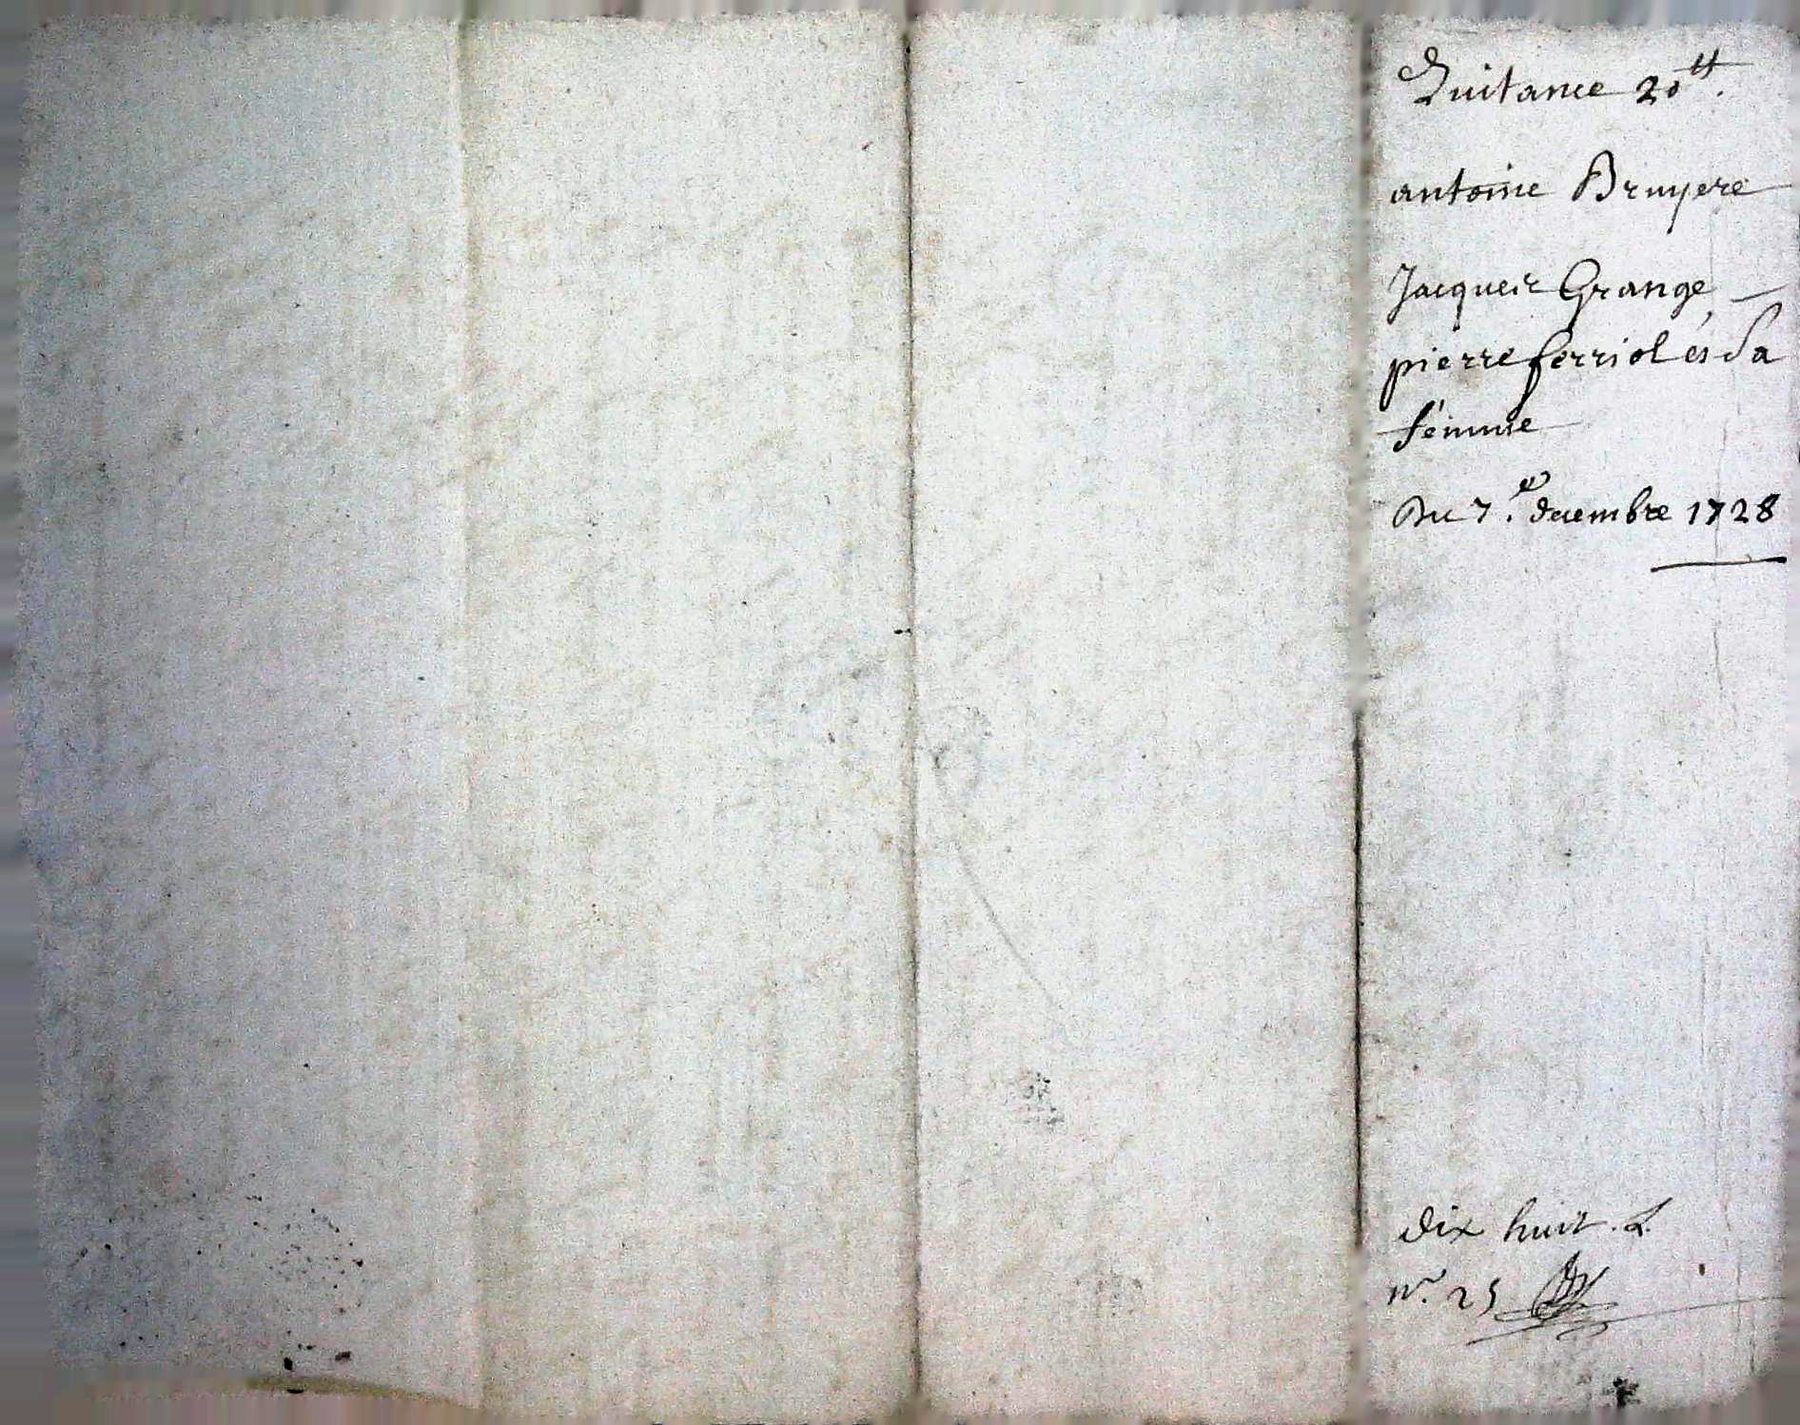 Quitance 20tt.
antoine Bruyere
Jacqueir Grange
pierre ferriol és Sa
fémme
Du 7.e decembre 1728
dix huit. L.
no. 25